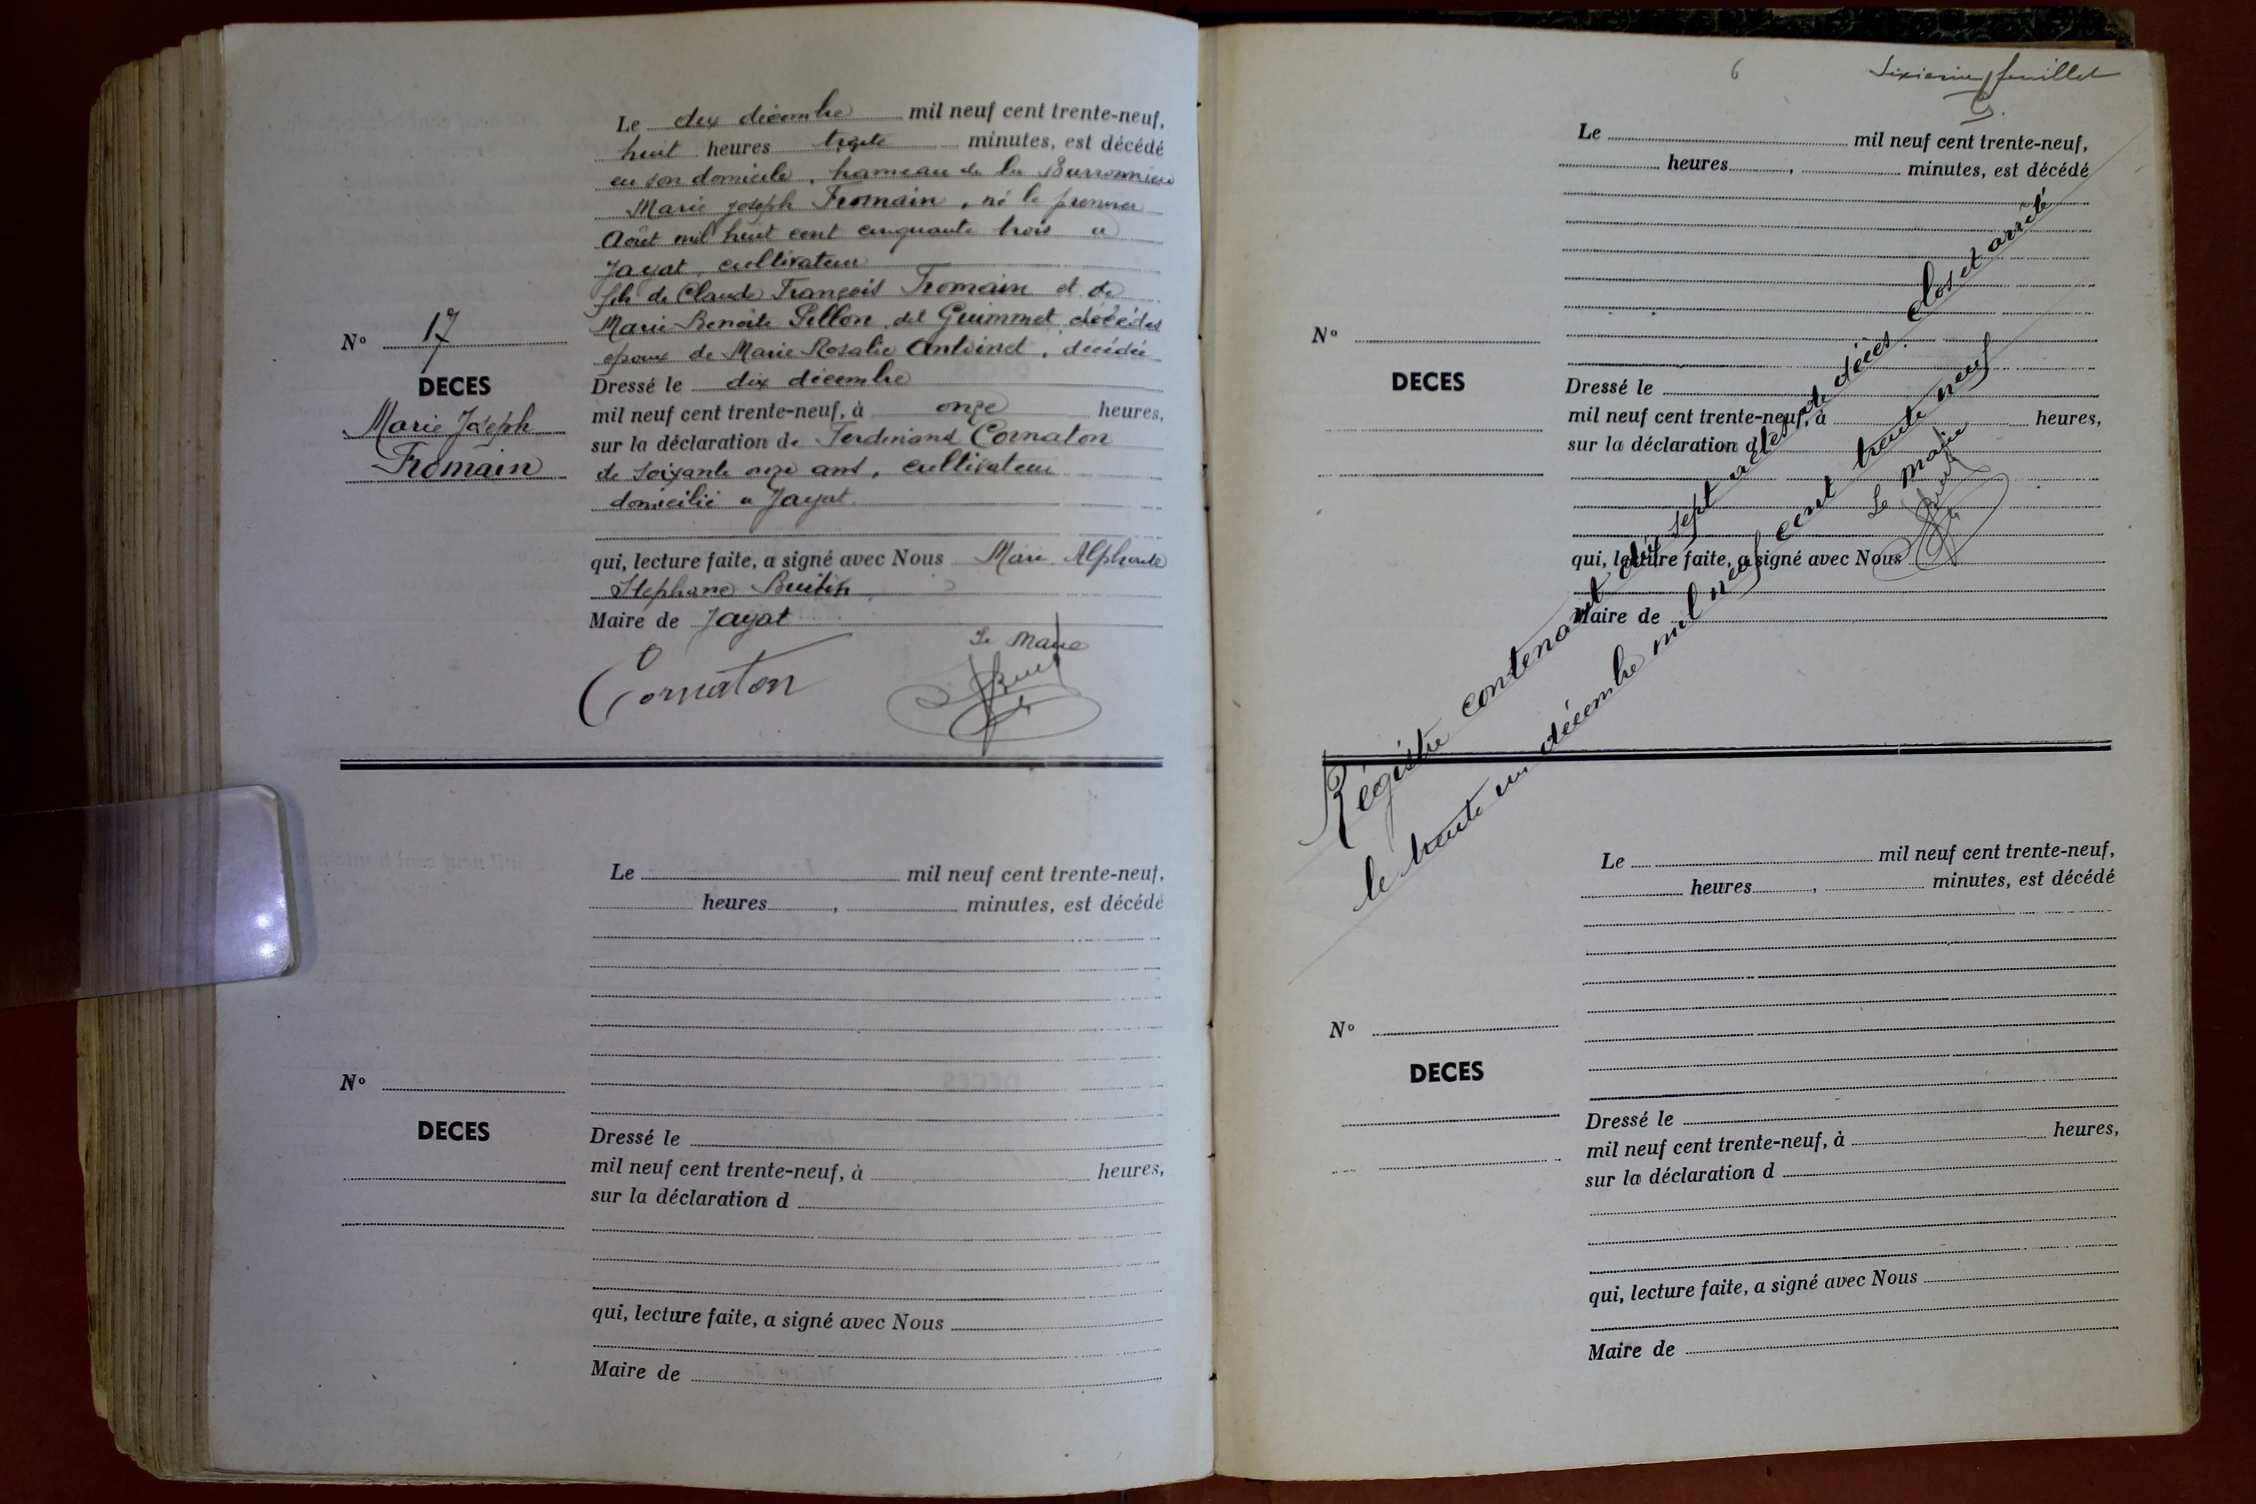 Le dix décembre mil neuf cent trente-neuf,
huit heures trente minutes, est décédé
en son domicile, hameau de la
Marie Joseph Fromain, né le premier
Août mil huit cent cinquante trois a
Jayat, cultivateur
fils de Claude François Fromain et de
Marie Benoite Sellon, dit Guimmet, décédés
epoux de Marie Rosalie Antoinet, décédée
N° 17
DECES
Marie Joseph
Fromain
Dressé le dix décembre
mil neuf cent trente-neuf, à onze heures,
sur la déclaration de Ferdinand Cornaton
de soixante onze ans, cultivateur
domicilié a Jayat
qui, lecture faite, a signé avec Nous Marie Alphonse
Stephane
Maire de Jayat
Le Maire
Cornaton
Le mil neuf cent trente-neuf,
heures , minutes, est décédé
N°
DECES
Dressé le
mil neuf cent trente-neuf, à heures,
sur la déclaration d
qui, lecture faite, a signé avec Nous
Maire de
6
Sixième feuillet
Le mil neuf cent trente-neuf,
heures , minutes, est décédé
N°
DECES
Dressé le
mil neuf cent trente-neuf, à heures,
sur la déclaration d
qui, lecture faite, a signé avec Nous
Maire de
Régistre contenant dix sept actes de décès. clos et arrêté
le trente un décembre mil neuf cent trente neuf
Le maire
Le mil neuf cent trente-neuf,
heures , minutes, est décédé
N°
DECES
Dressé le
mil neuf cent trente-neuf, à heures,
sur la déclaration d
qui, lecture faite, a signé avec Nous
Maire de